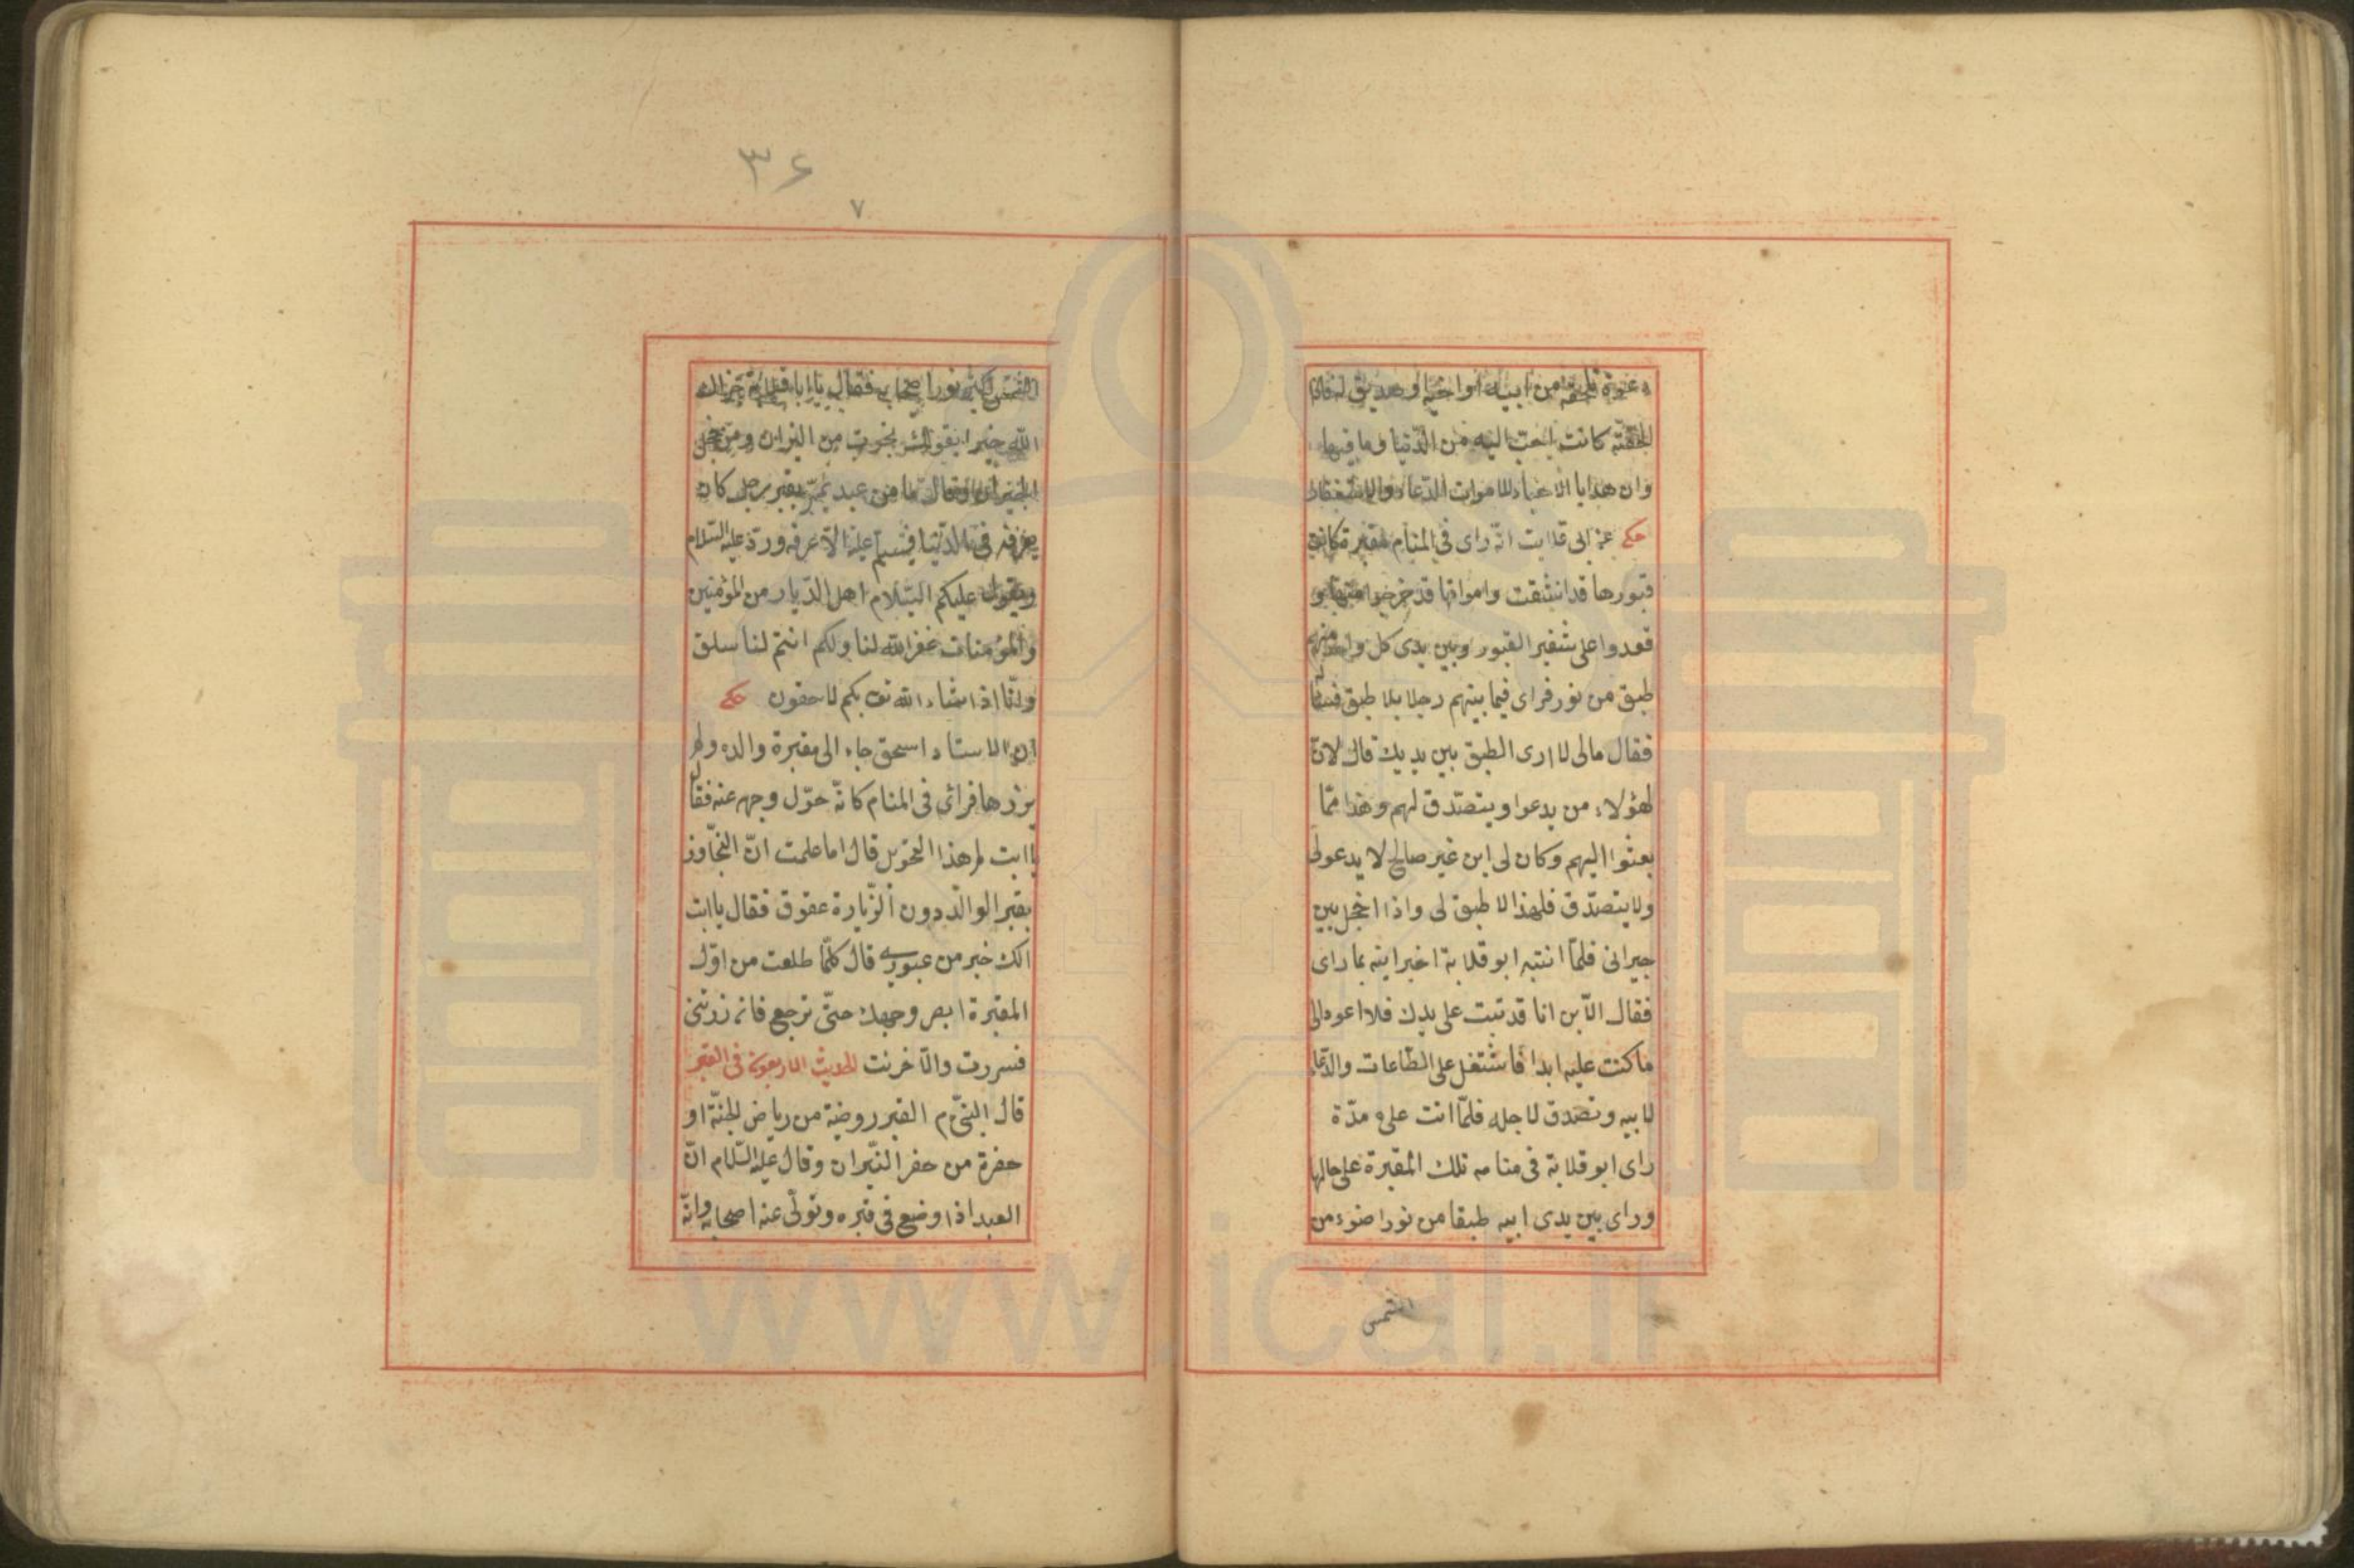 دعوة تلحقه من ابيه او اخيه او صديق له فاذا
لحقته كانت احب اليه من الدنيا وما فيها
وان هدايا الاحياء للاموات الدعاء والاستغفار
حكى عن ابى قلابت انه راى فى المنام مقبرة كانت
قبورها قد انشقت وامواتها قد خرجوا منها و
قعدوا على شفير القبور وبين يدى كل واحد منهم
طبق من نور فراى فيما بينهم رجلا بلا طبق
فقال مالى لا ارى الطبق بين يديك قال لانّ
لهؤلاء من يدعوا ويتصدّق لهم وهذا ممّا
بعثوا اليهم وكان لى ابن غير صالح لا يدعو لى
ولا يتصدّق فلهذا لا طبق لى واذا اخجل بين
جيرانى فلمّا انتبه ابو قلابة اخبر ابنه بما راى
فقال الابن انا قد تبت على يدك فلا اعود الى
ما كنت عليه ابدا فاشتغل على الطّاعات والدّعاء
لابيه وتصدق لاجله فلمّا اتت عليه مدّة
راى ابو قلابة فى منامه تلك المقبرة على حالها
وراى بين يدى ابيه طبقا من نور اضوء من
الشمس
٣۶
٧
الشمس اكثر نورا فقال يا ابا قلابة جزاك
الله خيرا بقولك نجوت من النيران ومن خجل
الجيران وقال ما من عبد يمرّ بقبر رجل كان
يعرفه فى الدّنيا فيسلّم عليه الّا عرفه وردّ عليه السّلام
ويقول عليكم السّلام اهل الدّيار من المؤمنين
والمؤمنات غفر الله لنا ولكم انتم لنا سلف
وانّا اذا شاء الله تع بكم لاحقون حكى
ان الاستاد اسحق جاء الى مقبرة والده ولم
يزرها فراى فى المنام كانّه حوّل وجهه عنه فقال
يا ابت لم هذا التحوّيل قال اما علمت انّ التجّاوز
بقبر الوالد دون الزّيارة عقوق فقال يا ابت
الك خبر من عبورى قال كلّما طلعت من اوّل
المقبرة ابصر وجهك حتّى ترجع فان زرتنى
فسررت والّا خرنت الحديث الاربعون فى القبر
قال النبىّ م القبر روضة من رياض الجنّة او
حفرة من حفر النّيران وقال عليه السّلام انّ
العبد اذا وضع فى قبره وتولّى عنه اصحابه وانّه